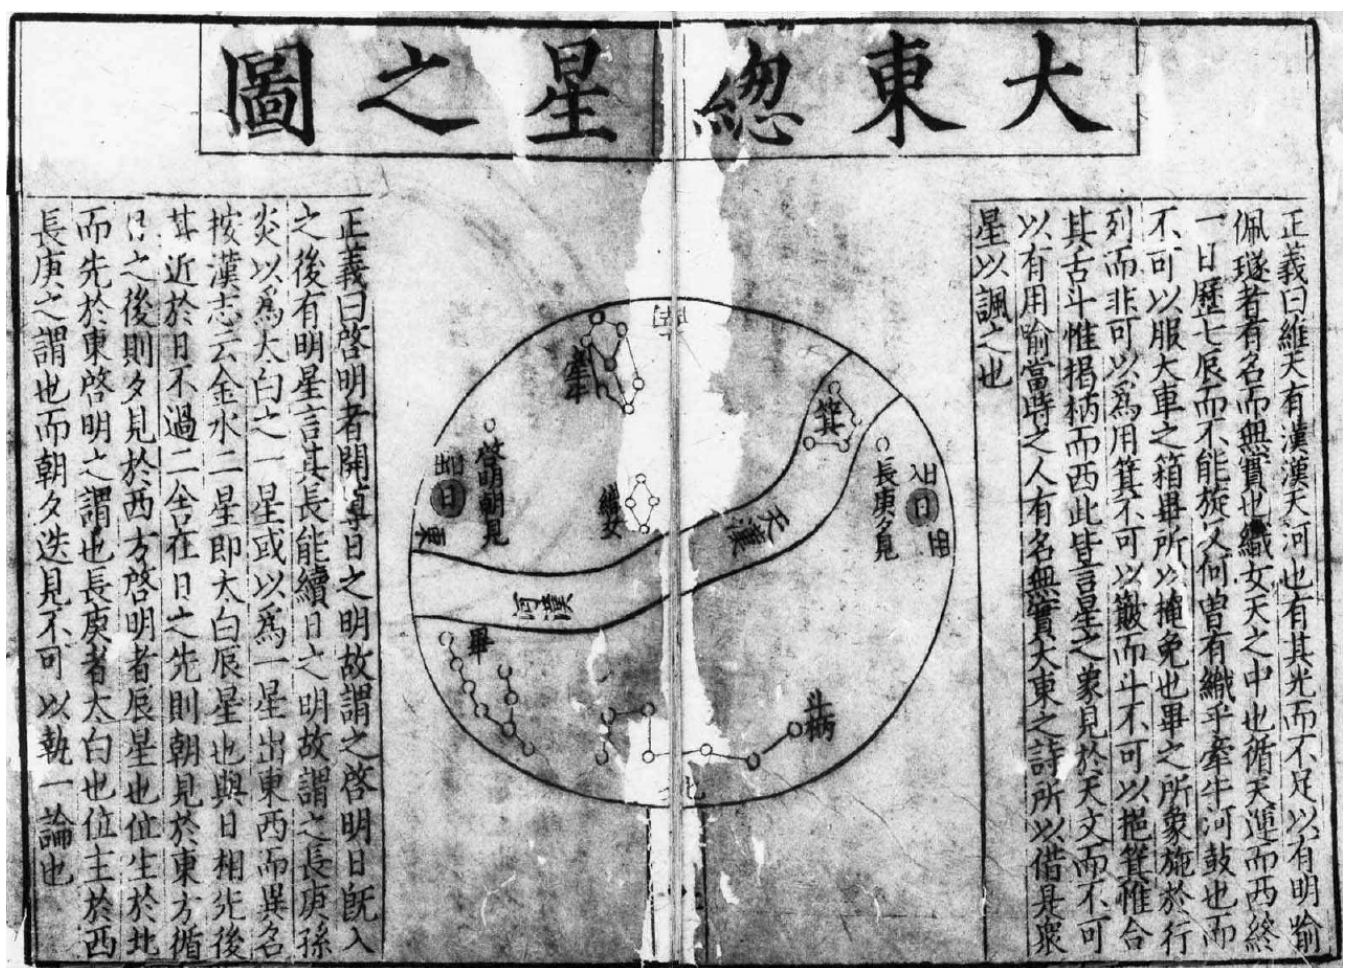 大東緫星之圖
正義曰維天有漢漢天河也有其光而不足以有明喻
佩璲者有名而無實也織女天之中也循天運而西終
一日歷七辰而不能旋又何曽有織乎牽牛河鼓也而
不可以服大車之箱畢所以掩兔也畢之所象施於行
列而非可以爲用箕不可以簸而斗不可以挹箕惟合
其舌斗惟揭柄而西此皆言星之象見於天文而不可
以有用喻當時之人有名無實大東之詩所以借是衆
星以諷之也
南
箕
長庚夕見
入日
西
天漢
牽牛
織女
啓明朝見
出日
東
河漢
畢
斗柄
北
正義曰啓明者開導日之明故謂之啓明日旣入
之後有明星言其長能續日之明故謂之長庚孫
炎以爲太白之一星或以爲一星出東西而異名
按漢志云金水二星即太白辰星也與日相先後
其近於日不過二舍在日之先則朝見於東方循
日之後則夕見於西方啓明者辰星也位生於北
而先於東啓明之謂也長庚者太白也位主於西
長庚之謂也而朝夕迭見不可以執一論也